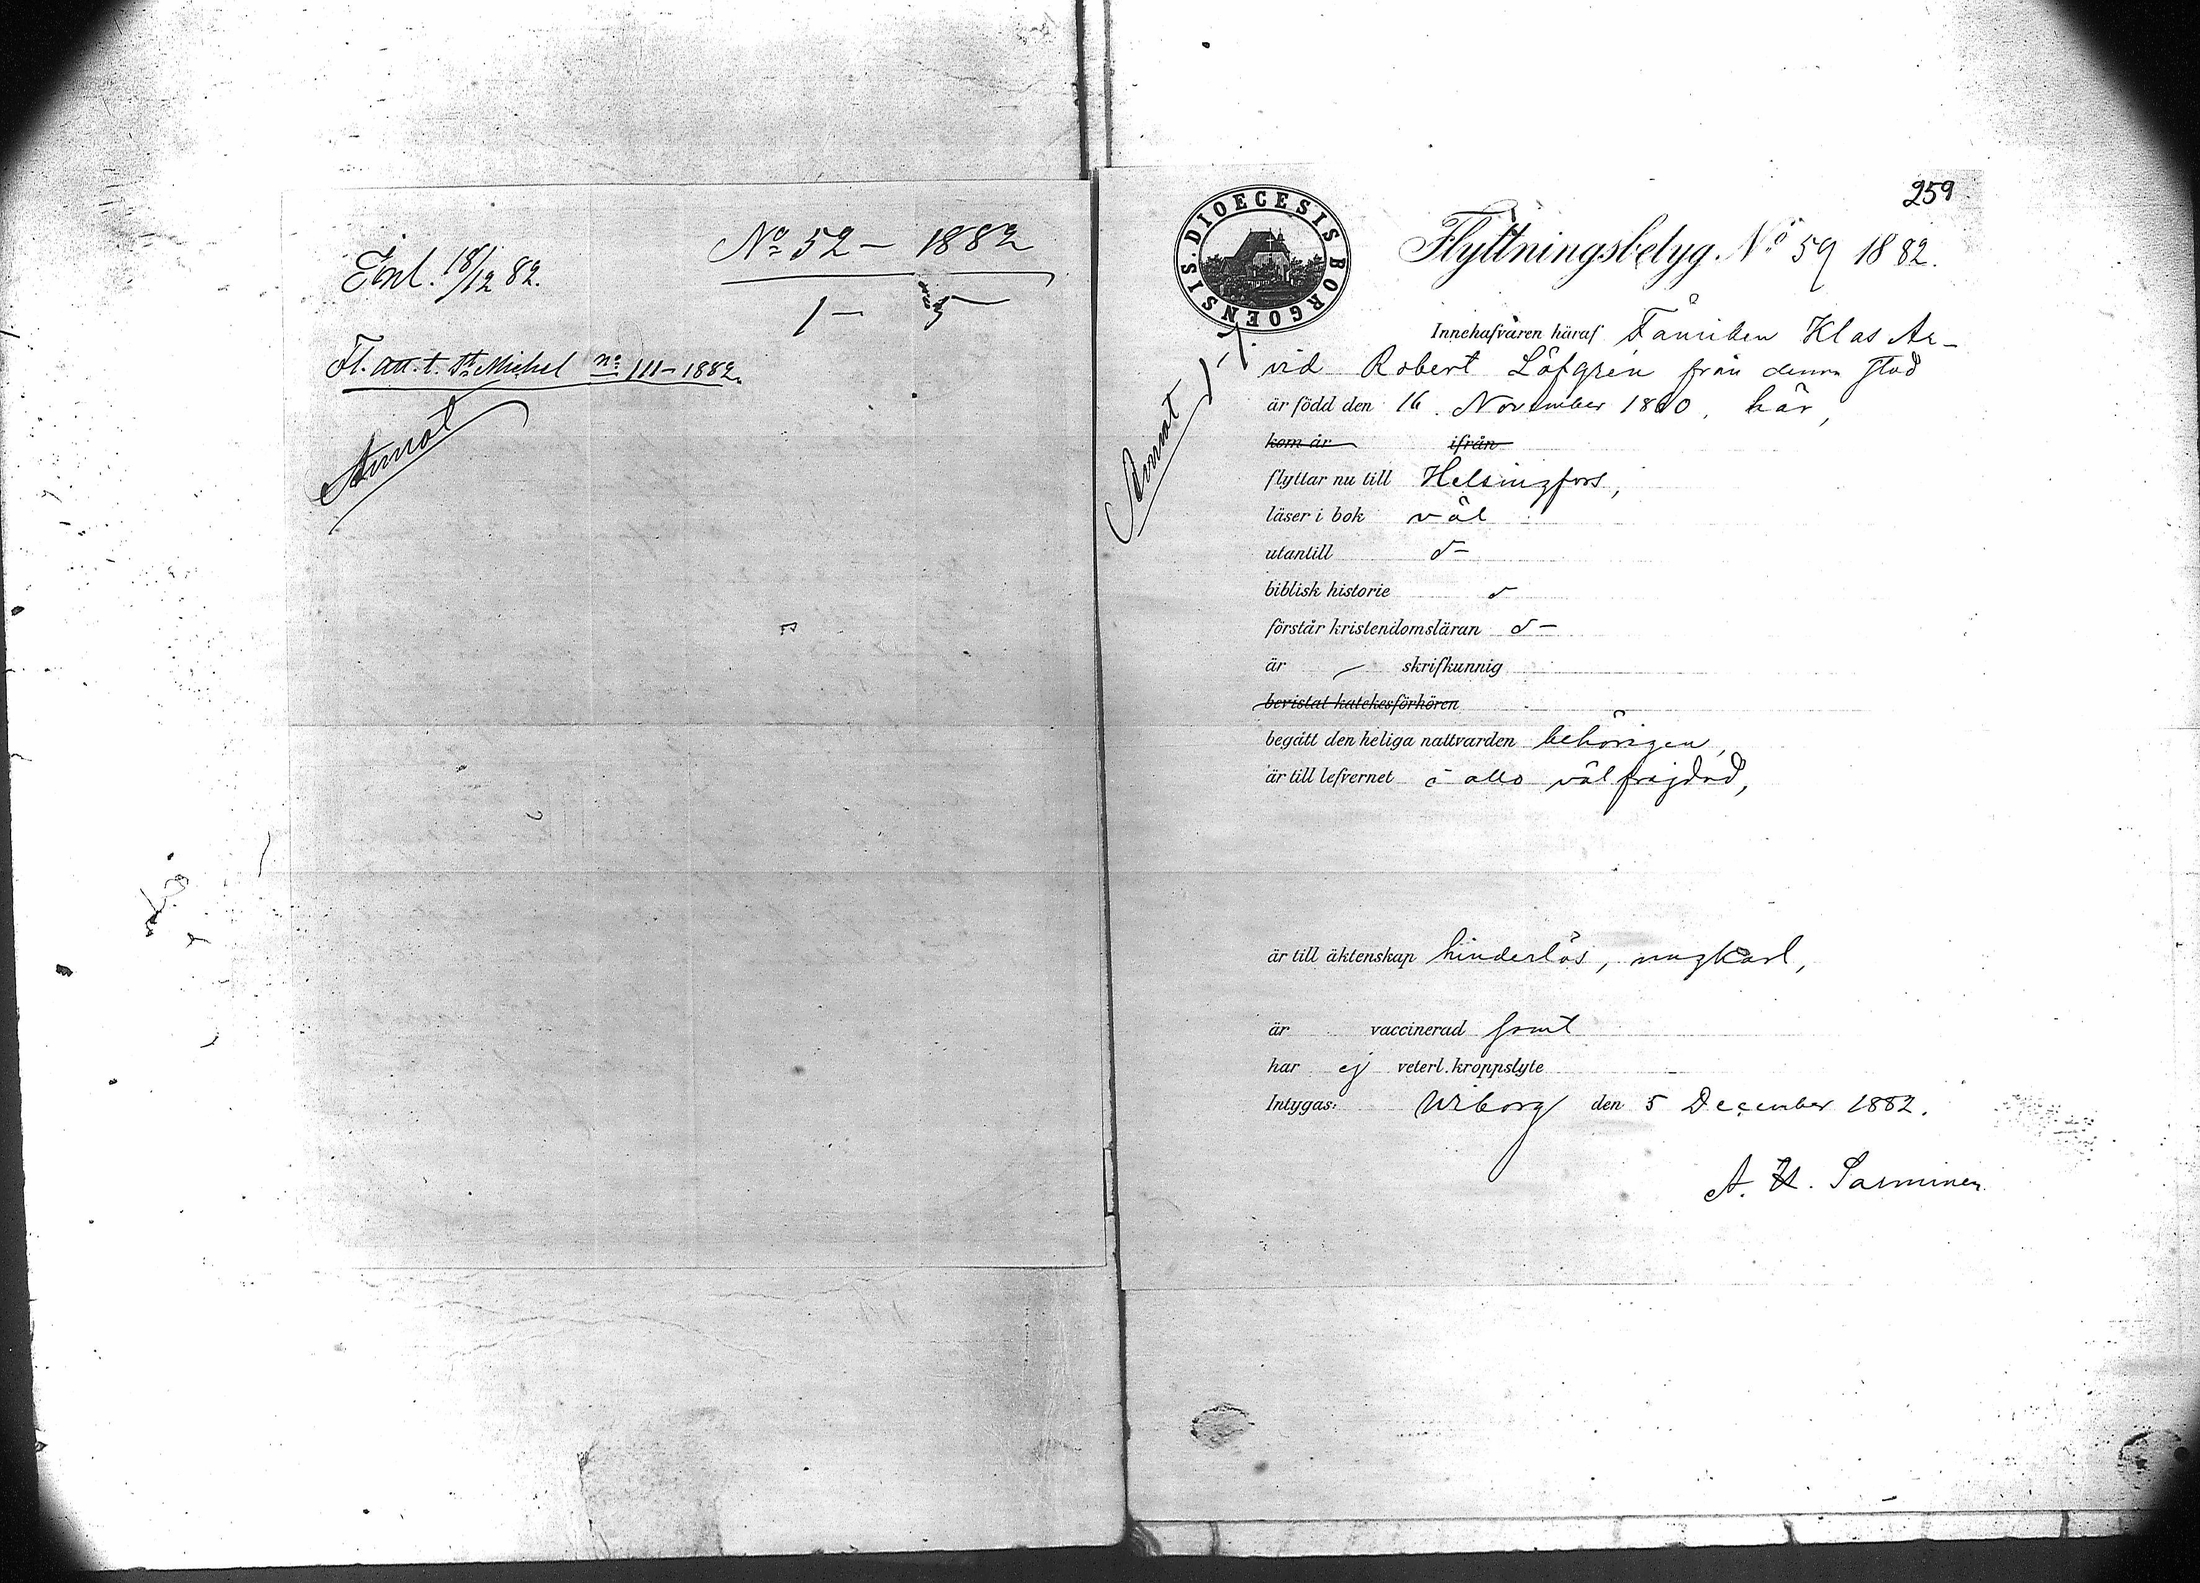 Enl. 18/12 82.
No 52 – 1882
1 – 5
Fl. att. t. St Michel no 111 – 1882.
Annot
259
DIOECESIS BORGOENSIS.
Flyttningsbetyg. No 59 1882.
Annot
Innehafvaren häraf Klas Ar-
vid Robert Löfgren från denna stad
är född den 16 November 1860, här,
kom år ifrån
flyttar nu till Helsingfors,
läser i bok väl
utantill d–
biblisk historie d
förstår kristendomsläran d–
är – skrifkunnig
bevistat katekesförhören
begått den heliga nattvarden behörigen,
är till lefvernet välfrejdad,
är till äktenskap hinderlös, ungkarl,
är vaccinerad samt
har ej veterl. kroppslyte
Intygas: Wiborg den 5 December 1882.
A. Sarminen